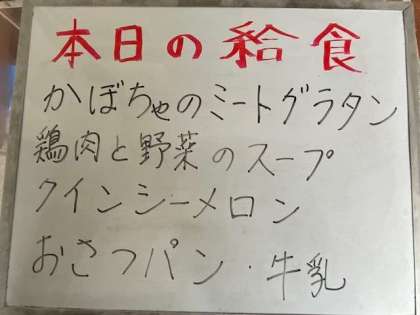 本日の給食
かぼちゃのミートグラタン
鶏肉と野菜のスープ
クインシーメロン
おさつパン・牛乳